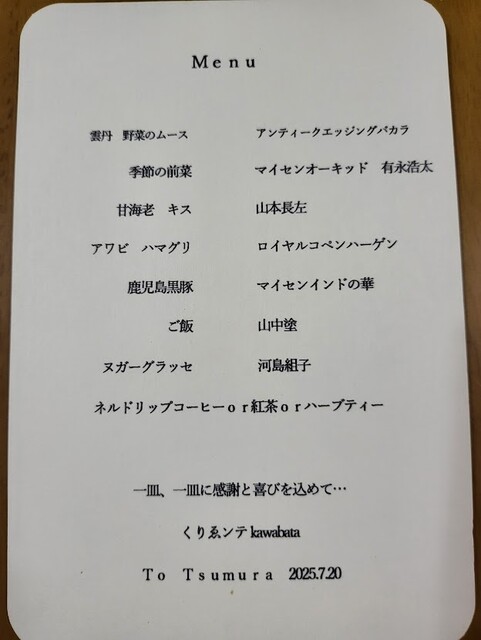 Menu
雲丹　野菜のムース　アンティークエッジングバカラ
季節の前菜　マイセンオーキッド　有永浩太
甘海老　キス　山本長左
アワビ　ハマグリ　ロイヤルコペンハーゲン
鹿児島黒豚　マイセンインドの華
ご飯　山中塗
ヌガーグラッセ　河島組子
ネルドリップコーヒーｏｒ紅茶ｏｒハーブティー
一皿、一皿に感謝と喜びを込めて…
くりゑンテ kawabata
To Tsumura 2025.7.20